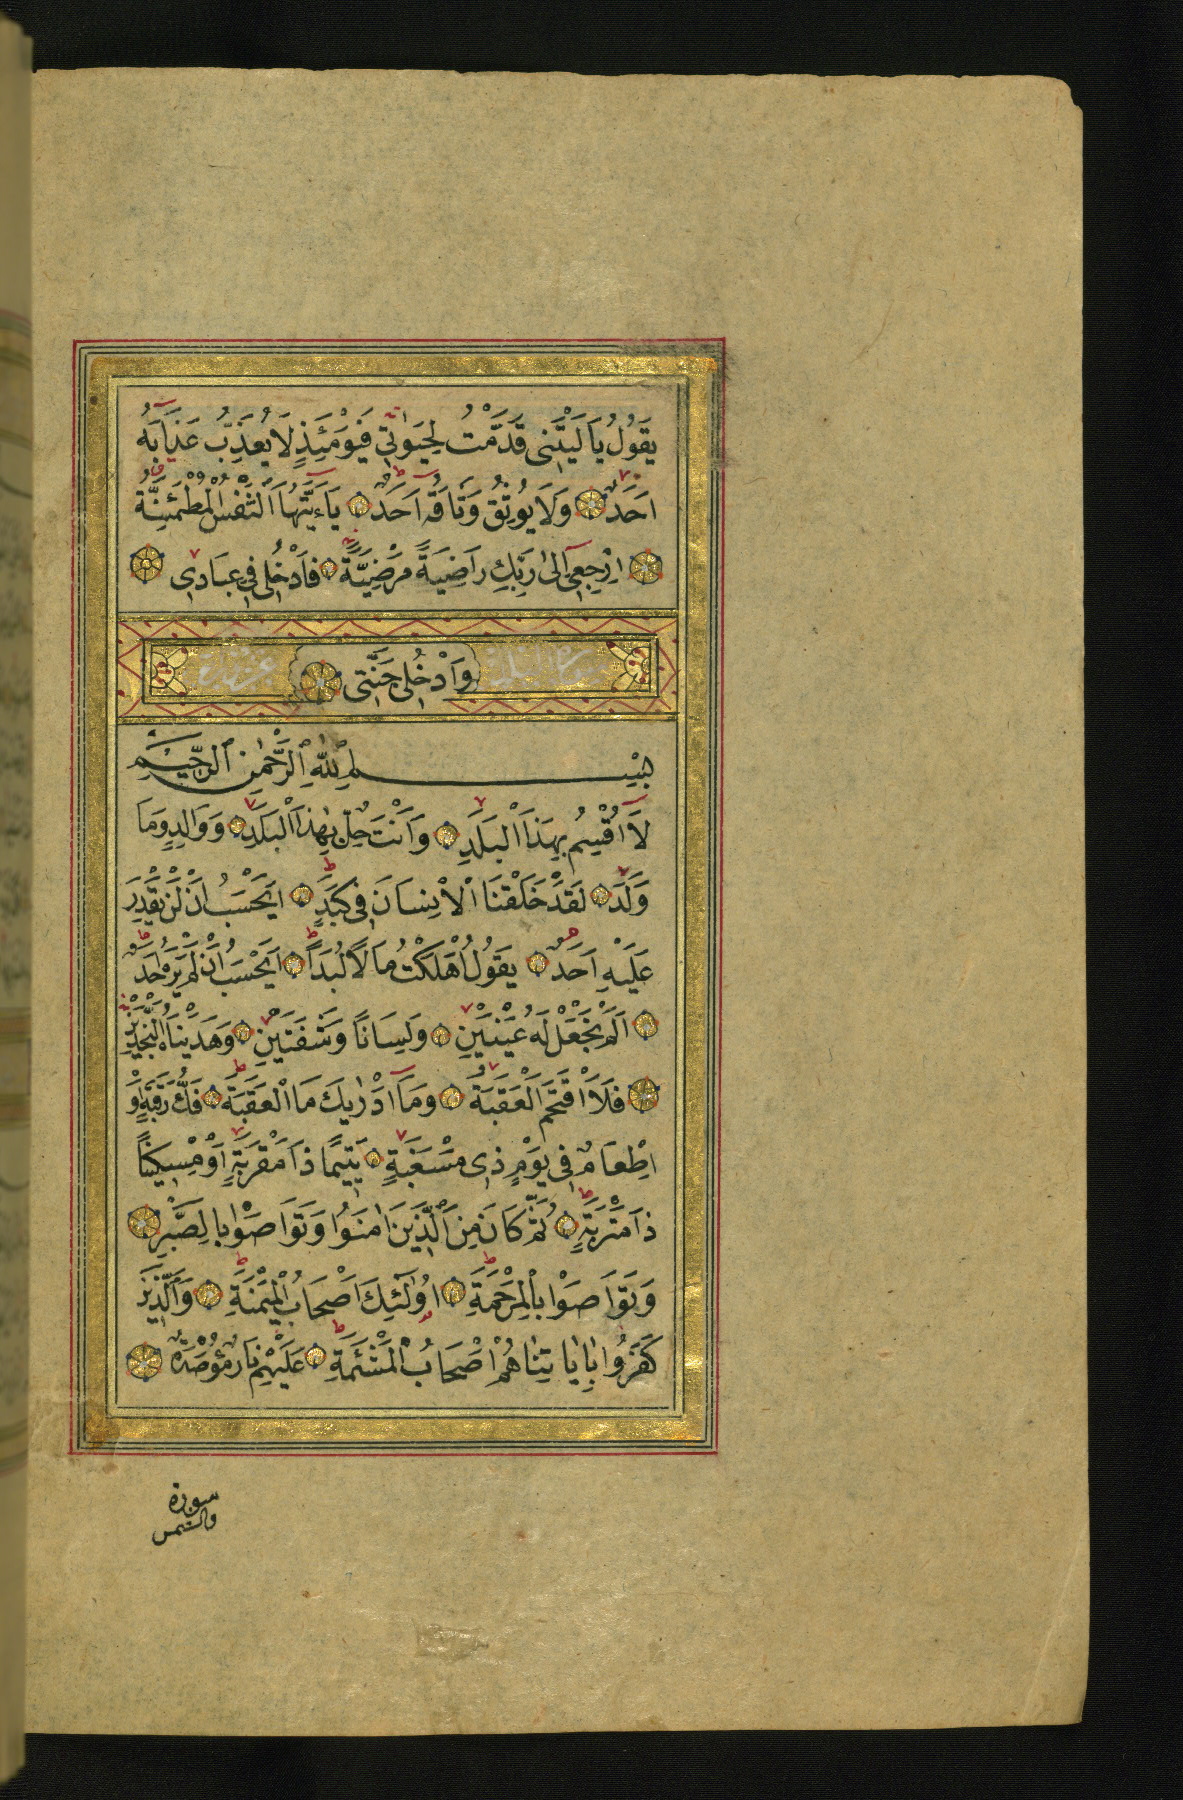 يَقُولُ يَا لَيْتَنِى قَدَّمْتُ لِحَيَوتِى فَيَوْمَئِذٍ لَا يُعَذِّبُ عَذَابَهُ
اَحَدٌ وَلَا يُوثِقُ وَثَاقَهُ اَحَدٌ يَاءَيَّتُهَا النَّفْسُ الْمُطْمَئِنَّةُ
اِرْجِعِى اِلٰى رَبِّكِ رَاضِيَةً مَرْضِيَّةً فَادْخُلِى فِى عِبَادِى
وَادْخُلِى جَنَّتِى
بِسْمِ اللّٰهِ الرَّحْمٰنِ الرَّحِيمِ
لَا اُقْسِمُ بِهٰذَا الْبَلَدِ وَاَنْتَ حِلٌّ بِهٰذَا الْبَلَدِ وَوَالِدٍ وَمَا
وَلَدَ لَقَدْ خَلَقْنَا الْاِنسَانَ فِى كَبَدٍ اَيَحْسَبُ اَنْ لَنْ يَقْدِرَ
عَلَيْهِ اَحَدٌ يَقُولُ اَهْلَكْتُ مَالًا لُبَدًا اَيَحْسَبُ اَنْ لَمْ يَرَهُ اَحَدٌ
اَلَمْ نَجْعَلْ لَهُ عَيْنَيْنِ وَلِسَانًا وَشَفَتَيْنِ وَهَدَيْنَاهُ النَّجْدَيْنِ
فَلَا اقْتَحَمَ الْعَقَبَةَ وَمَا اَدْرٰيكَ مَا الْعَقَبَةُ فَكُّ رَقَبَةٍ اَوْ
اِطْعَامٌ فِى يَوْمٍ ذِى مَسْغَبَةٍ يَتِيمًا ذَا مَقْرَبَةٍ اَوْ مِسْكِينًا
ذَا مَتْرَبَةٍ ثُمَّ كَانَ مِنَ الَّذِينَ اٰمَنُوا وَتَوَاصَوْا بِالصَّبْرِ
وَتَوَاصَوْا بِالْمَرْحَمَةِ اُولٰئِكَ اَصْحَابُ الْمَيْمَنَةِ وَالَّذِينَ
كَفَرُوا بِاٰيَاتِنَا هُمْ اَصْحَابُ الْمَشْئَمَةِ عَلَيْهِمْ نَارٌ مُؤْصَدَةٌ
سورة
والشمس